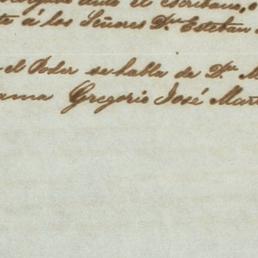 ante el Escribano, o
á los Señores Dn. Esteban
el Poder se habla de Dn. M
Gregorio José Mar